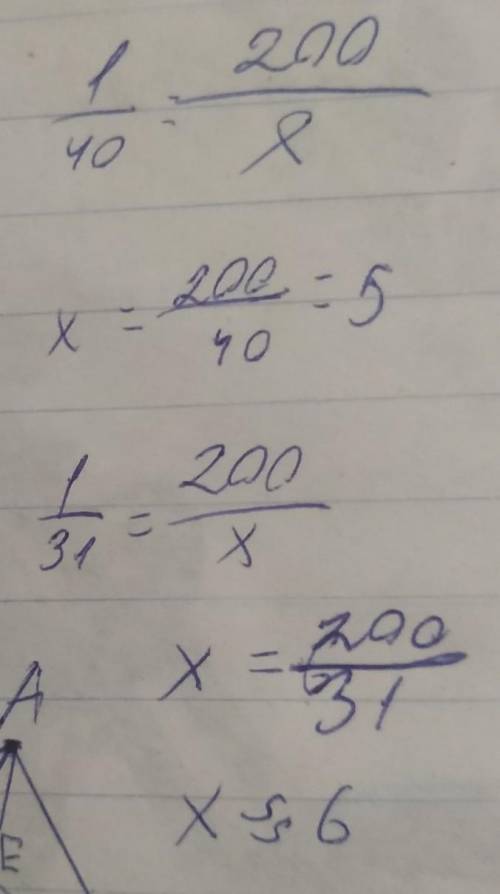 1/40 = 200/x
x = 200/40 = 5
1/31 = 200/x
x = 200/31
A
x ≈ 6
E